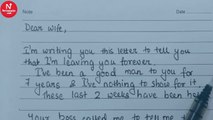 Dear wife,
I'm writing you this letter to tell you
that I'm leaving you forever.
I've been a good man to you for
7 years & I've nothing to show for it.
These last 2 weeks have been
Your boss called me to tell me